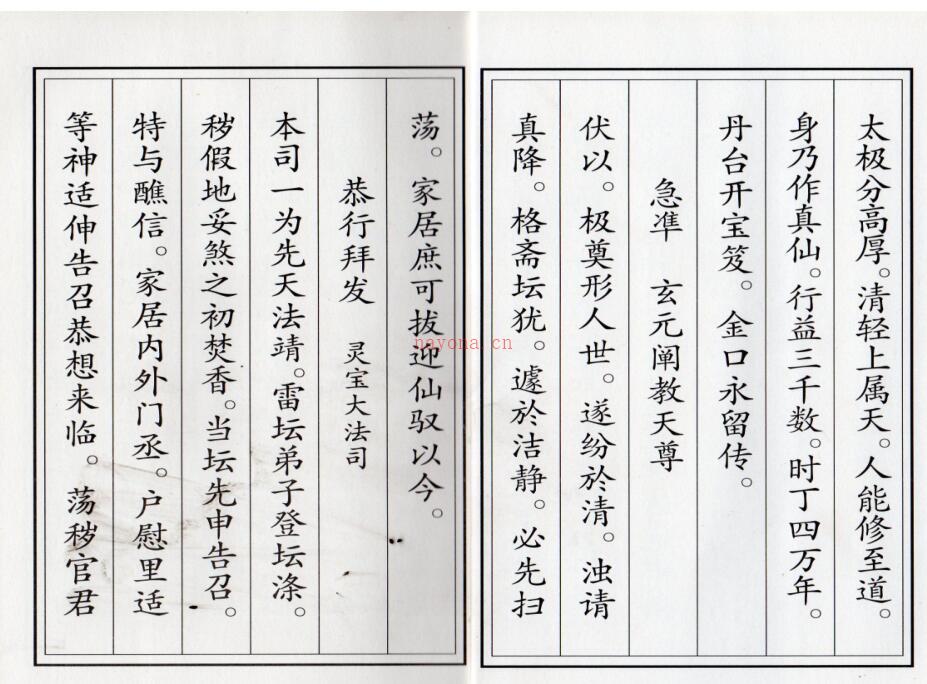 太极分高厚。清轻上属天。人能修至道。
身乃作真仙。行益三千数。时丁四万年。
丹台开宝笈。金口永留传。
急准 玄元阐教天尊
伏以。极奠形人世。遂纷於清。浊请
真降。格斋坛犹。遽於洁静。必先扫
荡。家居庶可拔迎仙驭以今。
恭行拜发 灵宝大法司
本司一为先天法靖。雷坛弟子登坛涤。
秽假地妥煞之初焚香。当坛先申告召。
特与醮信。家居内外门丞。户慰里适
等神适伸告召恭想来临。荡秽官君
nayona.cn